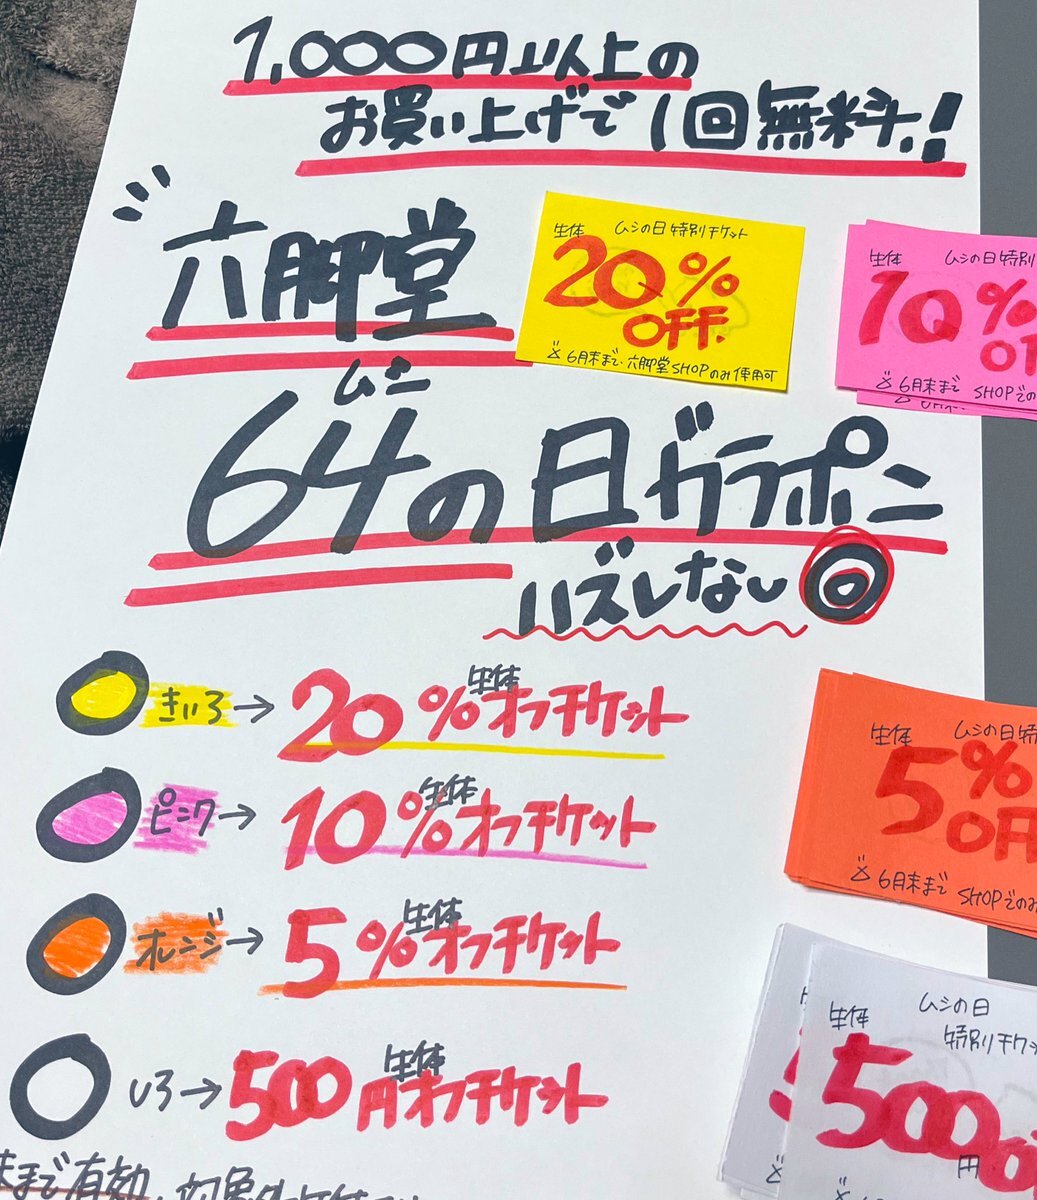 1,000円以上の
お買い上げで1回無料!
六脚堂
ムシ
64の日ガラポン
ハズレなし
きいろ→20%生体オフチケット
ピンク→10%生体オフチケット
オレンジ→5%生体オフチケット
しろ→500円生体オフチケット
末まで有効、対象外
生体 ムシの日特別チケット
20%
OFF
※6月末まで、六脚堂SHOPのみ使用可
生体 ムシの日特別
10%
※6月末まで SHOPでの
生体 ムシの日特別
5%
OFF
※6月末まで SHOPでのみ
生体 ムシの日
特別チケッ
500
円